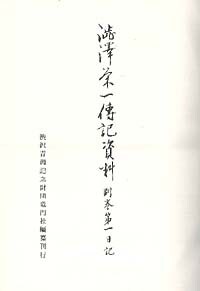 澁澤栄一傳記資料 別巻第一日記
渋沢青淵記念財団竜門社編纂刊行